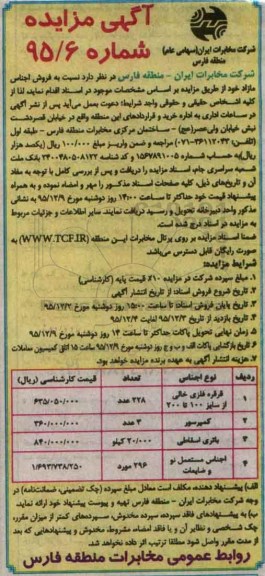 آگهی مزایده
شماره ۹۵/۶
شرکت مخابرات ایران(سهامی عام)
منطقه فارس
شرکت مخابرات ایران - منطقه فارس در نظر دارد نسبت به فروش اجناس
مازاد خود از طریق مزایده بر اساس مشخصات موجود در اسناد اقدام نماید، لذا از
کلیه اشخاص حقیقی و حقوقی واجد شرایط؛ دعوت بعمل می‌آید پس از نشر آگهی
در ساعات اداری به اداره خرید و قراردادهای این منطقه واقع در خیابان قصردشت
نبش خیابان ولی‌عصر(عج) - ساختمان مرکزی مخابرات منطقه فارس - طبقه اول
مراجعه و ضمن واریز مبلغ ۱۰۰/۰۰۰ ریال (یکصد هزار
ریال)به حساب شماره و شناسه کد بانک ملت
شعبه سراسری جام، اسناد مزایده را دریافت و پس از بررسی کامل با توجه به مفاد
آن و تاریخ‌های ذیل، کلیه صفحات اسناد مذکور را مهر و امضاء نموده و به همراه
پیشنهاد قیمت خود حداکثر تا ساعت ۱۴:۰۰ روز دوشنبه مورخ ۹۵/۱۲/۹ به نشانی
مذکور واحد دبیرخانه تحویل و رسید دریافت نمایند. سایر اطلاعات و جزئیات مربوط
به مزایده در اسناد درج شده است.
ضمنا اسناد مزایده بر روی پرتال مخابرات ایـن منطقه (WWW.TCF.IR) به
صورت رایگان قابل دسترس می‌باشد.
شرایط مزایده:
۱. مبلغ سپرده شرکت در مزایده ۱۰٪ قیمت پایه (کارشناسی)
۲. تاریخ شروع فروش اسناد: از تاریخ انتشار آگهی
۳. تاریخ پایان فروش اسناد: تا ساعت ۱۵:۰۰ روز دوشنبه مورخ ۹۵/۱۲/۲
۴. تاریخ بازدید از تاریخ ۹۵/۱۲/۳ لغایت ۹۵/۱۲/۴
۵. زمان نهایی تحویل پاکات حداکثر تا ساعت ۱۴ روز دوشنبه مورخ ۹۵/۱۲/۹
۶. تاریخ بازگشایی پاکات الف و ب و ج روز دوشنبه مورخ ۹۵/۱۲/۹ ساعت ۱۵ اتاق کمیسیون معاملات
۷. هزینه انتشار آگهی به عهده برنده مزایده خواهد بود.
ردیف نوع اجناس تعداد قیمت کارشناسی (ریال)
۱ قرقره فلزی خالی از سایز ۱۰۰ تا ۲۰۰ ۳۲۸ عدد ۶۲۵/۰۵۰/۰۰۰
۲ کمپرسور ۳ عدد ۳۶۰/۰۰۰/۰۰۰
۳ باتری اسقاطی ۲۰/۰۰۰ کیلو ۸۴۰/۰۰۰/۰۰۰
۴ اجناس مستعمل نو و ضایعات ۲۹۶ مورد ۱/۶۹۳/۷۳۸/۲۵۰
الف) پیشنهاد دهنده، مکلف است معادل مبلغ سپرده (چک تضمینی، ضمانت‌نامه) در
وجه شرکت مخابرات ایران - منطقه فارس تهیه و پیوست پیشنهاد خود ارائه نماید.
ب) به پیشنهادهای فاقد سپرده، سپرده مخدوش، سپرده‌های کمتر از میزان مقرر،
چک شخصی و نظایر آن و یا فاقد امضاء، مشروط، مخدوش و پیشنهادهایی که بعد
از مدت مقرر واصل شود مطلقا ترتیب اثر داده نخواهد شد.
روابط عمومی مخابرات منطقه فارس